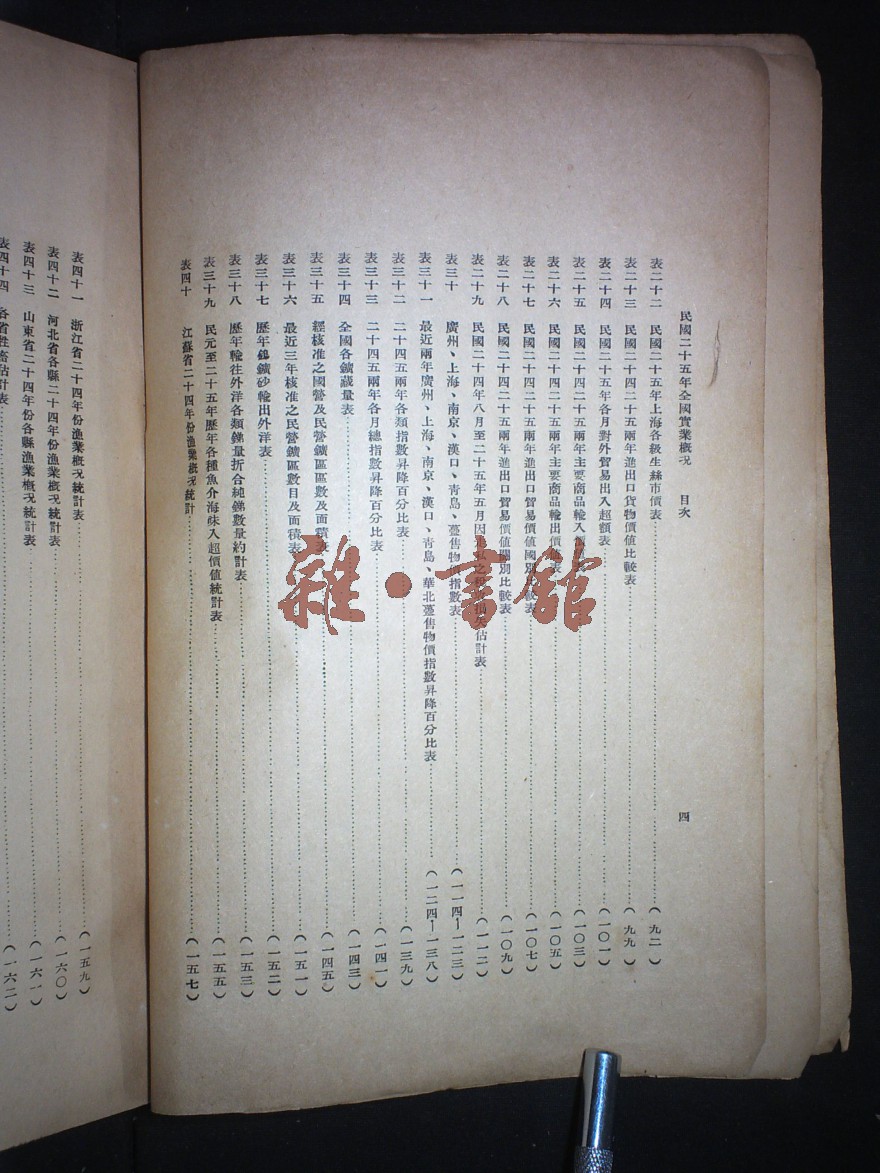 民國二十五年全國實業概况 目次 四
表二十二 民國二十五年上海各級生絲市價表 (九二)
表二十三 民國二十四二十五兩年進出口貨物價值比較表 (九九)
表二十四 民國二十五年各月對外貿易出入超額表 (一〇一)
表二十五 民國二十四二十五兩年主要商品輸入價值表 (一〇三)
表二十六 民國二十四二十五兩年主要商品輸出價值表 (一〇五)
表二十七 民國二十四二十五兩年進出口貿易價值國別比較表 (一〇七)
表二十八 民國二十四二十五兩年進出口貿易價值關別比較表 (一〇九)
表二十九 民國二十四年八月至二十五年五月因走私之稅收損失估計表 (一一二)
表三十 廣州、上海、南京、漢口、青島、躉售物價指數表 (一一四-一二三)
表三十一 最近兩年廣州、上海、南京、漢口、青島、華北躉售物價指數昇降百分比表 (一二四-一三八)
表三十二 二十四五兩年各類指數昇降百分比表 (一三九)
表三十三 二十四五兩年各月總指數昇降百分比表 (一四一)
表三十四 全國各鑛藏量表 (一四三)
表三十五 經核准之國營及民營鑛區區數及面積表 (一四五)
表三十六 最近三年核准之民營鑛區數目及面積表 (一五一)
表三十七 歷年鎢鑛砂輸出外洋表 (一五二)
表三十八 歷年輸往外洋各類銻量折合純銻數量約計表 (一五三)
表三十九 民元至二十五年歷年各種魚介海味入超價值統計表 (一五五)
表四十 江蘇省二十四年份漁業概况統計 (一五七)
表四十一 浙江省二十四年份漁業概况統計表 (一五九)
表四十二 河北省各縣二十四年份漁業概况統計表 (一六〇)
表四十三 山東省二十四年份各縣漁業概况統計表 (一六一)
表四十四 各省牲畜估計表 (一六二)
雜·書館